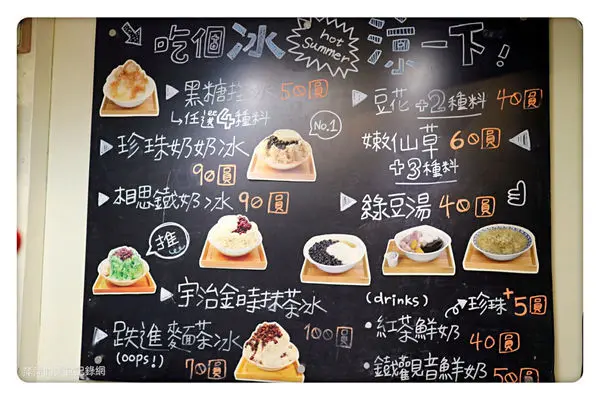 吃個冰 涼一下!
hot Summer
黑糖挫冰 50圓
↳任選4種料
珍珠奶奶冰
90圓
No.1
相思鐵奶冰 90圓
推
宇治金時抹茶冰
100圓
跌進麵茶冰
(oops!) 70圓
豆花+2種料 40圓
嫩仙草 60圓
+3種料
綠豆湯 40圓
(drinks)
珍珠+5圓
紅茶鮮奶 40圓
鐵觀音鮮奶 50圓